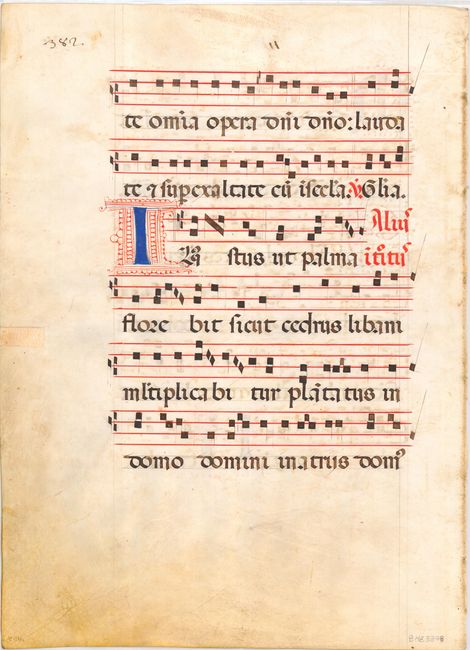 382.
te om̄ia opera dn̄i dn̄o: lauda
te ⁊ sup̱exaltate eū ī sec̄la. ℣. Gl̄ia.
Iustus ut palma Alius ītroitus
florebit sicut cedrus libani
ml̄tiplicabitur plātatus in
domo domini in atriis dom⁹